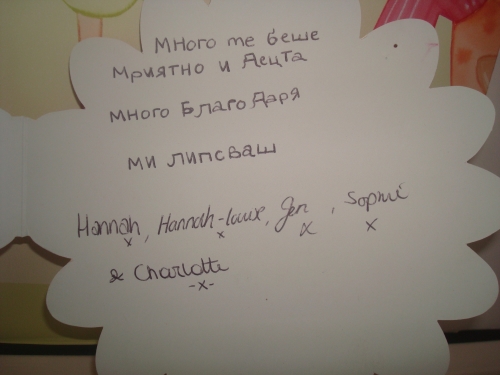 много те беше
мриятно и децта
много благодаря
ми липсваш
Hannah, Hannah-Louise, Jen, Sophie
x x x x
& Charlotte
-x-